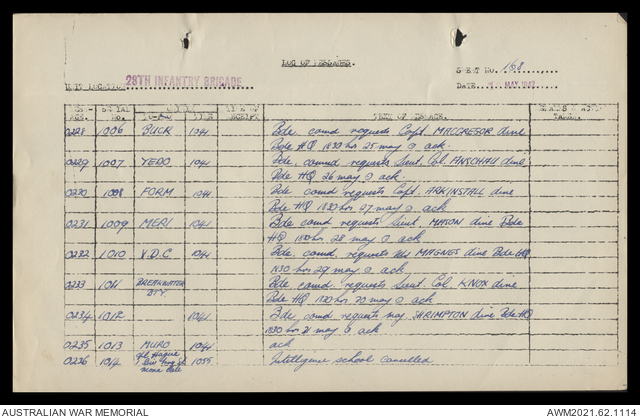 LOG OF MESSAGES.
SHEET No. 168
28TH INFANTRY BRIGADE
DATE MAY 1942
SERIAL No. TO TIME TEXT OF MESSAGE. TAKEN.
0228 1006 BUCK 1041 Bde comd requests Capt. MACGREGOR dine
Bde HQ 1830 hrs 25 may ack.
0229 1007 YEDO 1041 Bde. comd requests Lieut. Col. ANSCHAU dine
Bde HQ 26 may ack.
0230 1008 FORM 1041 Bde comd requests Capt. ARKINSTALL dine
Bde HQ 1830 hrs 27 may ack.
0231 1009 MERI 1041 Bde comd requests Lieut MASON dine Bde
HQ 1830 hrs 28 may ack
0232 1010 V.D.C 1041 Bde. comd. requests MAGNES dine Bde HQ
1830 hrs 29 may ack
0233 1011 BREAKWATER BTY Bde comd requests Lieut. Col. KNOX dine
Bde HQ 1830 hrs 30 may ack
0234 1012 1041 Bde, comd requests maj SHRIMPTON dine Bde HQ
1830 hrs 31 may ack
0235 1013 MURO 1041 ack
0236 1014 1055 Intelligence school cancelled
AUSTRALIAN WAR MEMORIAL
AWM2021.62.1114